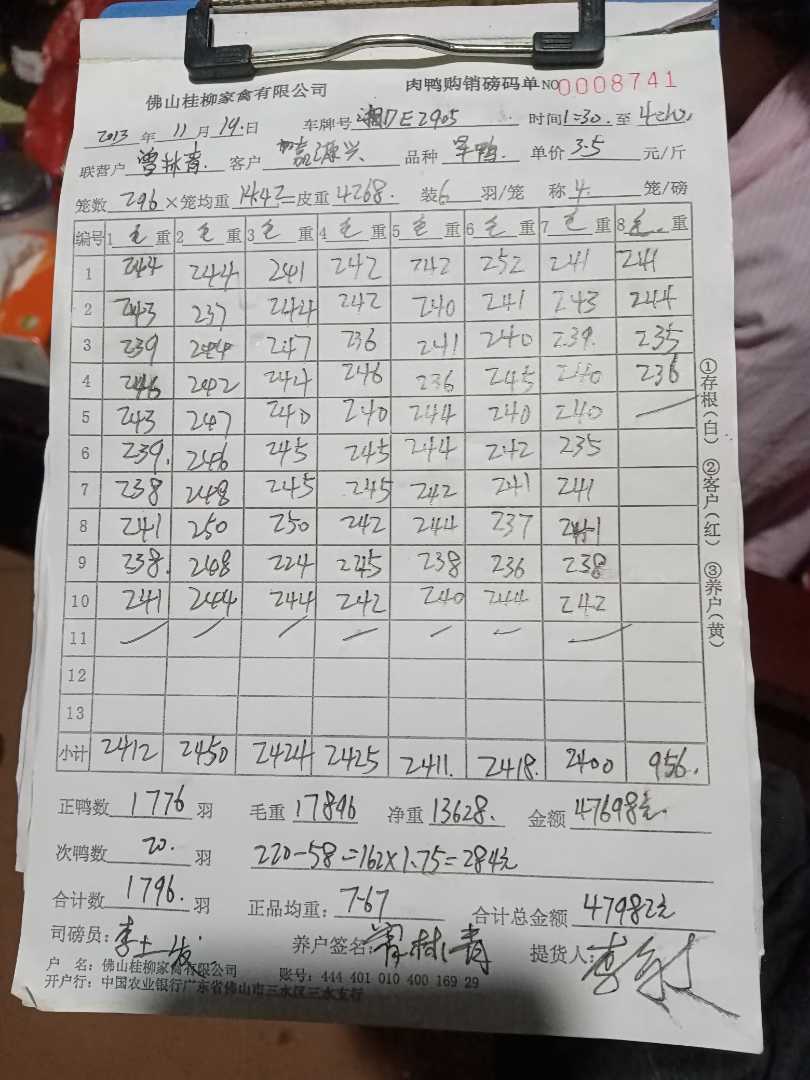 佛山桂柳家禽有限公司 肉鸭购销磅码单 NO 0008741
2013 年 11 月 19 日 车牌号 湘DE2905 时间 1:30 至
联营户 曾林青 客户 源兴 品种 单价 3.5 元/斤
笼数 296 ×笼均重 14.42 =皮重 4268. 装 6 羽/笼 称 4 笼/磅
编号 1 毛 重 2 毛 重 3 毛 重 4 毛 重 5 毛 重 6 毛 重 7 毛 重 8 毛 重
1 244 244 241 242 242 252 241 241
2 243 237 244 242 240 241 243 244
3 239 244 247 236 241 240 239. 235
4 246 242 244 246 236 245 240 236
5 243 247 240 240 244 240 240
6 239. 246 245 245 244 242 235
7 238 248 245 245 242 241 241
8 241 250 250 242 244 237 241
9 238. 248 224 245 238 236 238
10 241 244 244 242 240 244 242
11
12
13
小计 2412 2450 2424 2425 2411. 2418. 2400 956.
正鸭数 1776 羽 毛重 17896 净重 13628. 金额 47698元
次鸭数 20. 羽 220-58=162×1.75=284元
合计数 1796. 羽 正品均重: 7.67 合计总金额 47982元
司磅员: 李 养户签名: 曾林青 提货人:
户 名: 佛山桂柳家禽有限公司 账号: 444 401 010 400 169 29
开户行: 中国农业银行广东省佛山市三水区三水支行
①存根(白) ②客户(红) ③养户(黄)